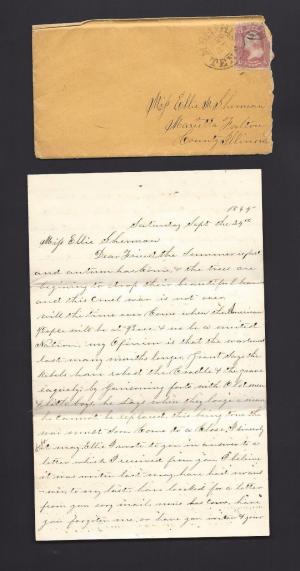 TE
Miss Ellie Sherman
Marietta Fulton
County Illinois
1864
Saturday Sept the 24th
Miss Ellie Sherman
Dear Friend the Summer is past
and autumn has Come & the trees are
beginning to drop their beautiful leaves
and this Cruel war is not over
will the time ever Come when the American
People will be at Peace & we be a united
Nation, my Opinion is that the war must
last many months longer, Grant Says the
Rebels have robed the Cradle & the grave
equaly by Garisoning forts with Old men
& little boys he Says when they loose a man
he cannot be replaced this being true the
war must soon Come to a Close, I hardly
may Ellie I wrote to you in answer to a
letter which I received from you I believe
it was written last may have heit no ans
to my last, have looked for a letter
from you evry mail, none has Come, have
you forgoten me, or have you writen & your